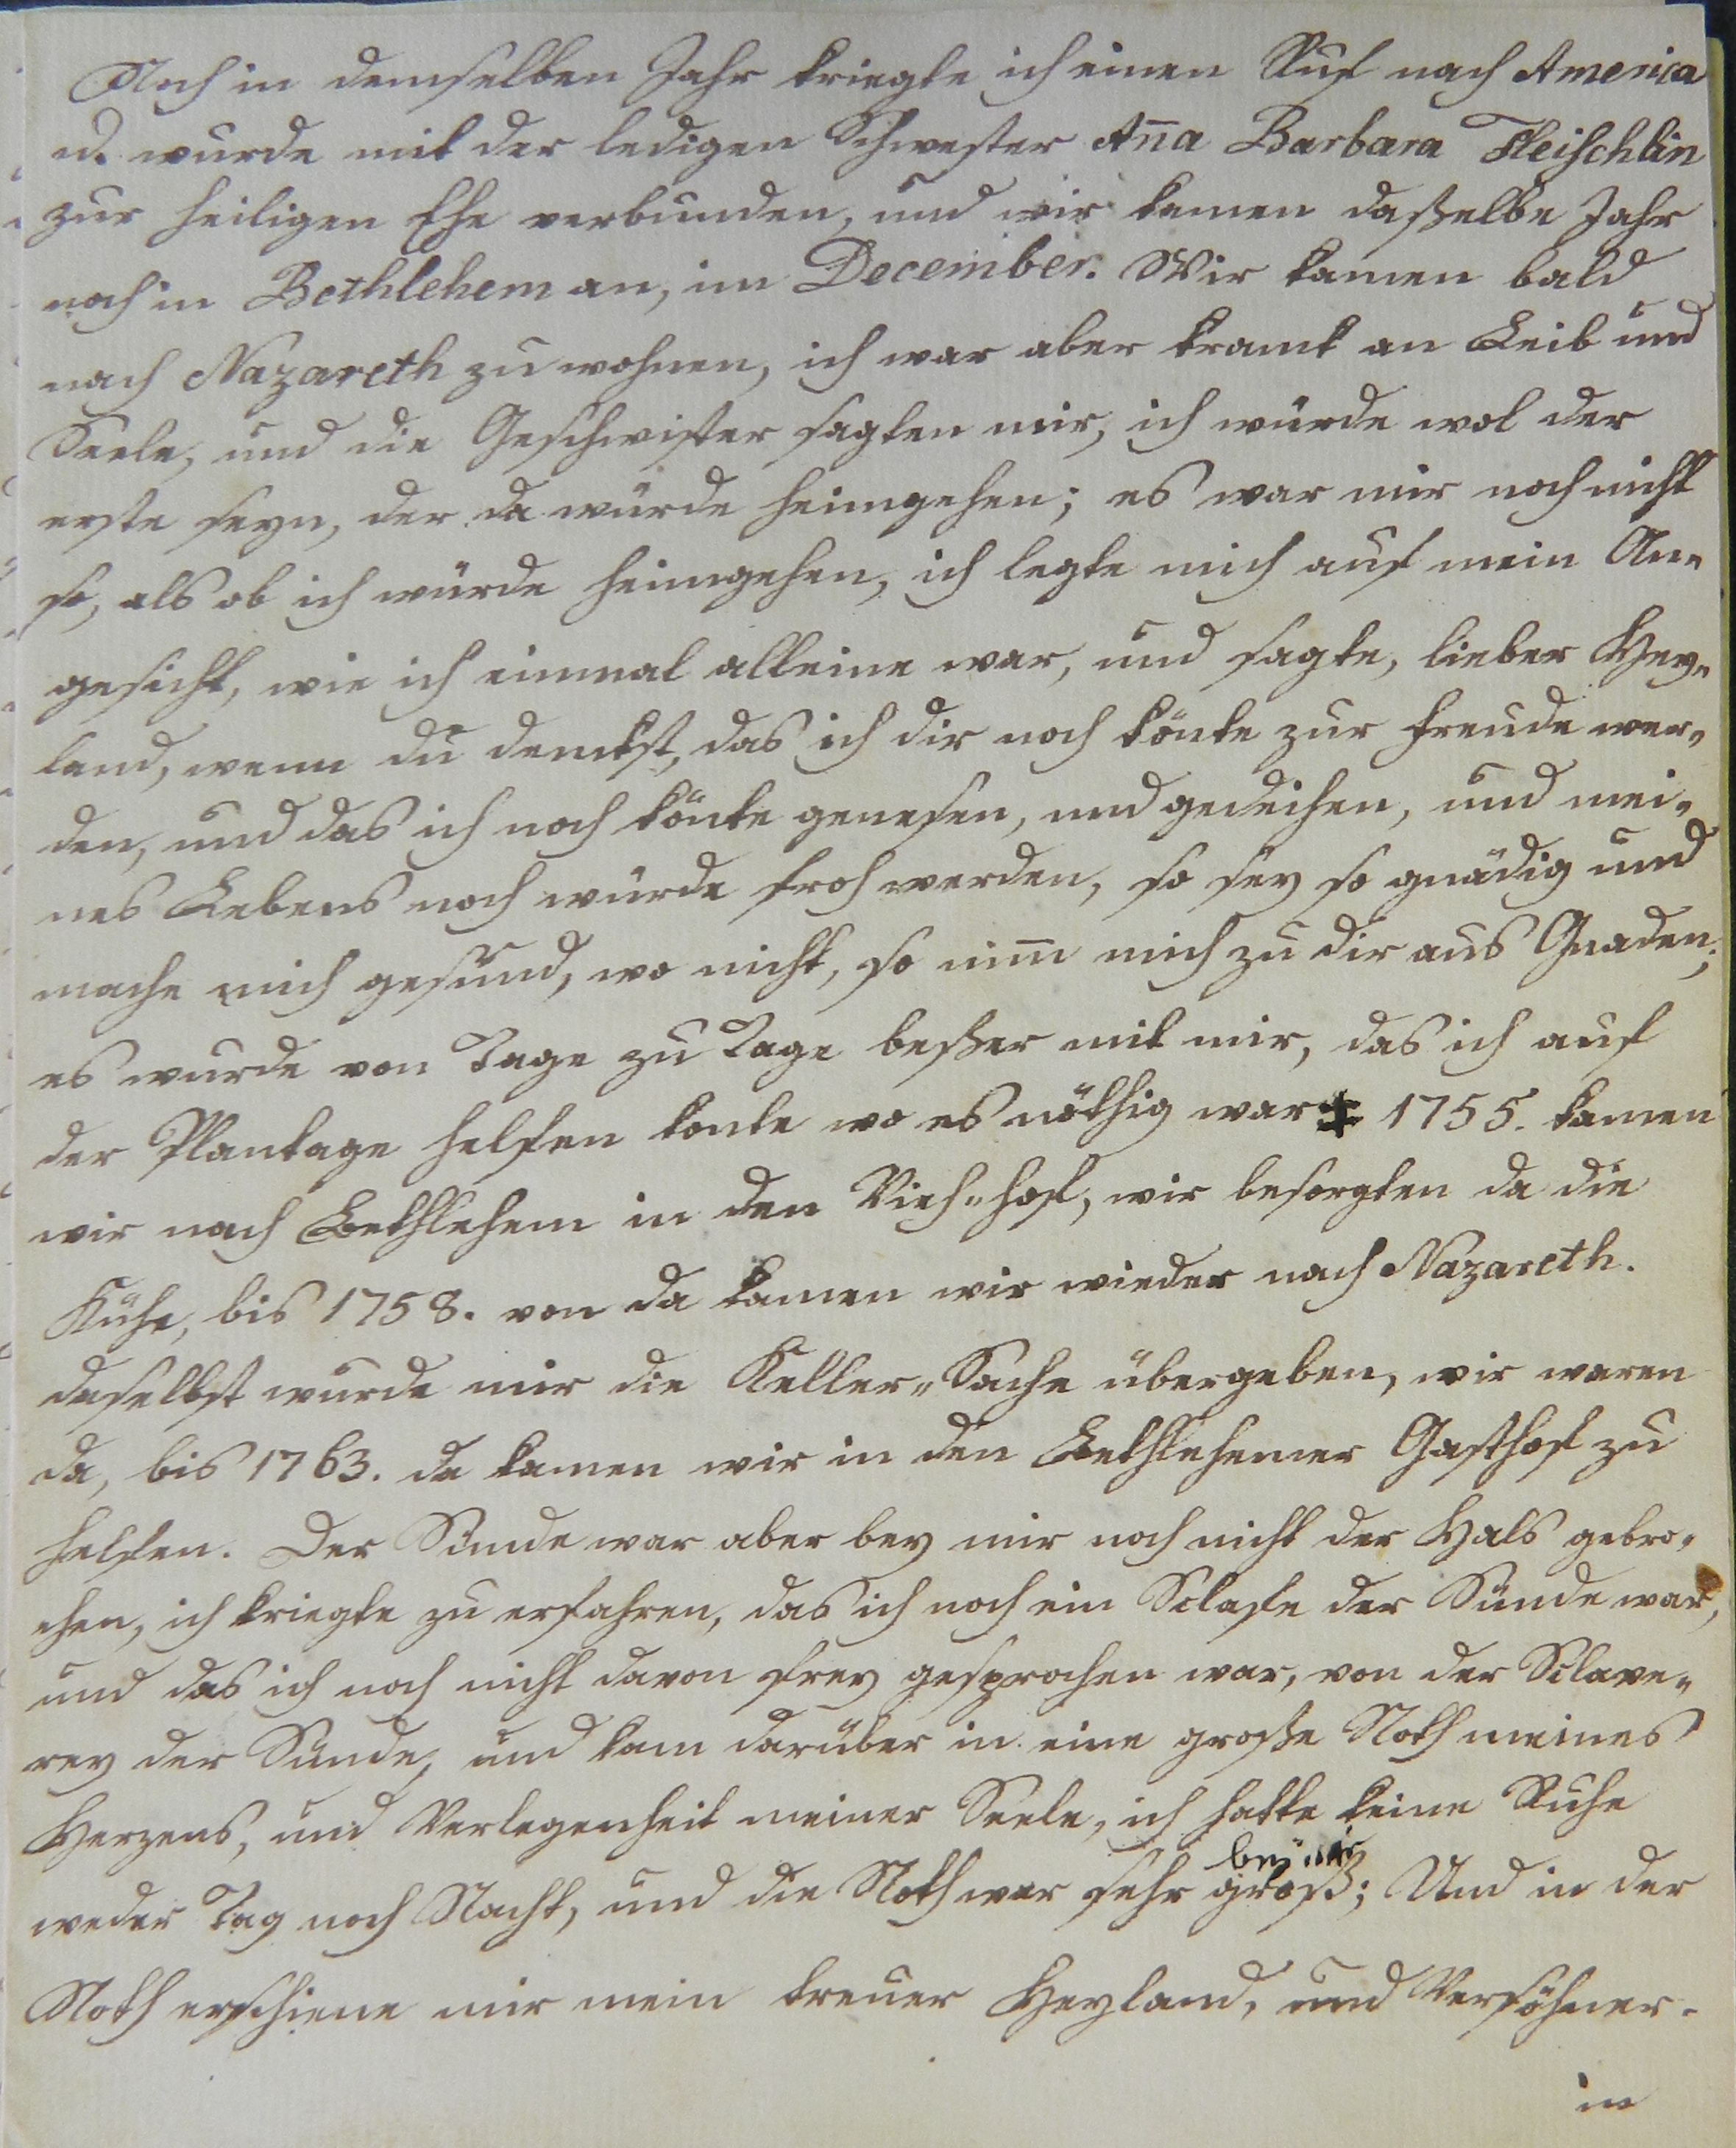 Noch in demselben Jahr kriegte ich einen Ruf nach America
u. wurde mit der ledigen Schwester An̄a Barbara Fleischlin
zur heiligen Ehe verbunden, und wir kamen daßelbe Jahr
noch in Bethlehem an, im December. Wir kamen bald
nach Nazareth zu wohnen, ich war aber kranck an Leib und
Seele, und die Geschwister sagten mir, ich würde wol der
erste seyn, der da würde heimgehen; es war mir noch nicht
so, als ob ich würde heimgehen, ich legte mich auf mein An„
gesicht, wie ich einmal alleine war, und sagte, lieber Hey„
land, wenn du denckst, das ich dir noch könte zur Freude wer„
den, und das ich noch könte genesen, und gedeihen, und mei„
nes Lebens noch würde froh werden, so sey so gnädig und
mache mich gesund, wo nicht, so nim̄ mich zu dir aus Gnaden;
es wurde von Tage zu Tage beßer mit mir, das ich auf
der Plantage helfen konte wo es nöthig war ‡ 1755. kamen
wir nach Bethlehem in den Vieh„hof, wir besorgten da die
Kühe, bis 1758. von da kamen wir wieder nach Nazareth.
daselbst wurde mir die Keller„Sache übergeben, wir waren
da, bis 1763. da kamen wir in den Bethlehemer Gasthof zu
helfen. Der Sünde war aber bey mir noch nicht der Hals gebro„
chen, ich kriegte zu erfahren, das ich noch ein Sclafe der Sünde war,
und das ich noch nicht davon frey gesprochen war, von der Sclave„
rey der Sünde, und kam darüber in eine große Noth meines
Herzens, und Verlegenheit meiner Seele, ich hatte keine Ruhe
bey mir
weder Tag noch Nacht, und die Noth war sehr groß; Und in der
Noth erschiene mir mein treuer Heyland, und Versöhner.
in